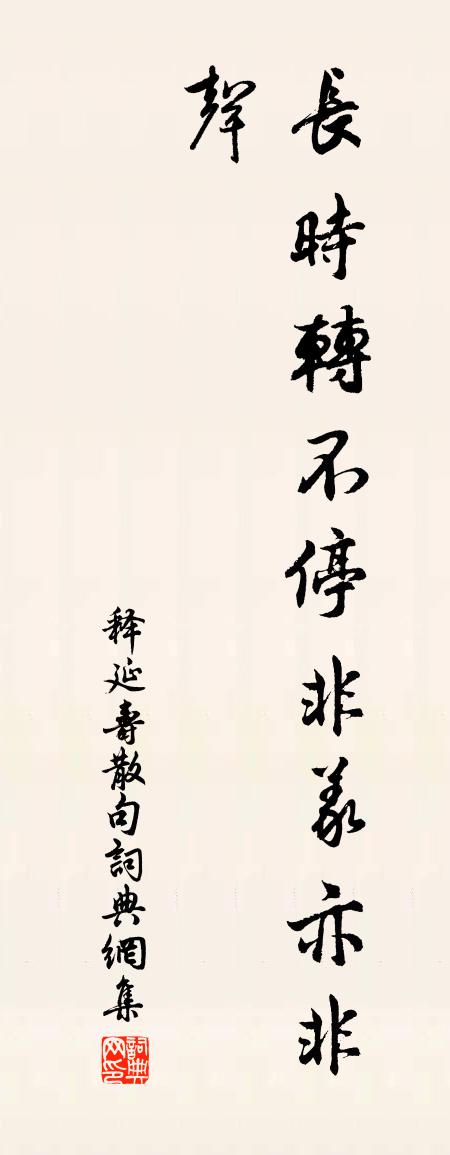 長時轉不停非义亦非
聲
释延壽散句詞典網集
詞典网印